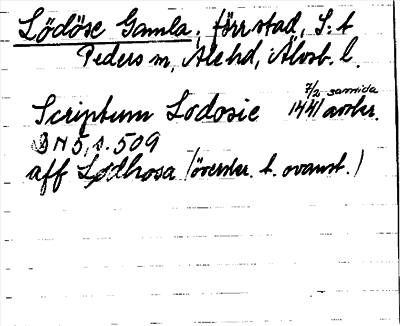 Lödöse Gamla, förr stad, S:t
Peders sn, Ale hd, Älvsb. l.
7/2 samtida
Scriptum Lodosie 1441 avskr.
DN 5, s. 509
aff Lødhosa (överskr. t. ovanst.)